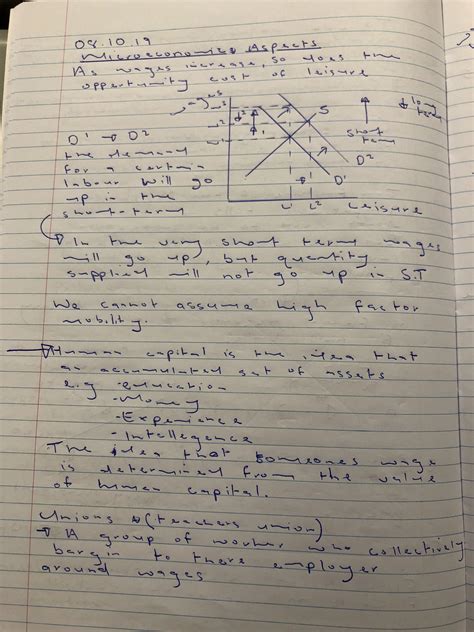 08.10.19
Microeconomics Aspects
As wages increase, so does the
opportunity cost of leisure
wages
S
short term
long term
D² D¹
L¹ L² leisure
D¹ → D²
the demand
for a certain
labour will go
up in the
short-term
In the very short term wages
will go up, but quantity
supplied will not go up in S.T
We cannot assume high factor
mobility.
Human capital is the idea that
an accumulated set of assets
e.g - education
- Money
- Experience
- Intellegence
The idea that someones wage
is determined from the value
of human capital.
Unions (teachers union)
A group of worker who collectively
bargin to there employer
around wages